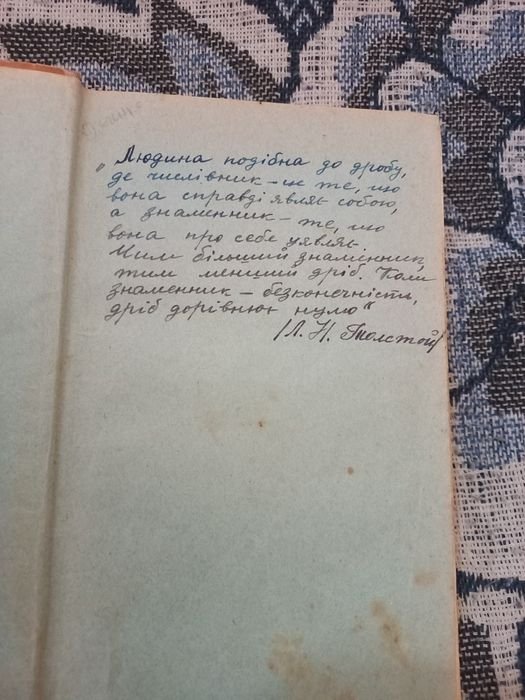 „Людина подібна до дробу,
де числівник – це те, що
вона справді являє собою,
а знаменник – те, що
вона про себе уявляє.
Чим більший знаменник,
тим менший дріб. Коли
знаменник – безконечність,
дріб дорівнює нулю"
/Л. Н. Толстой/